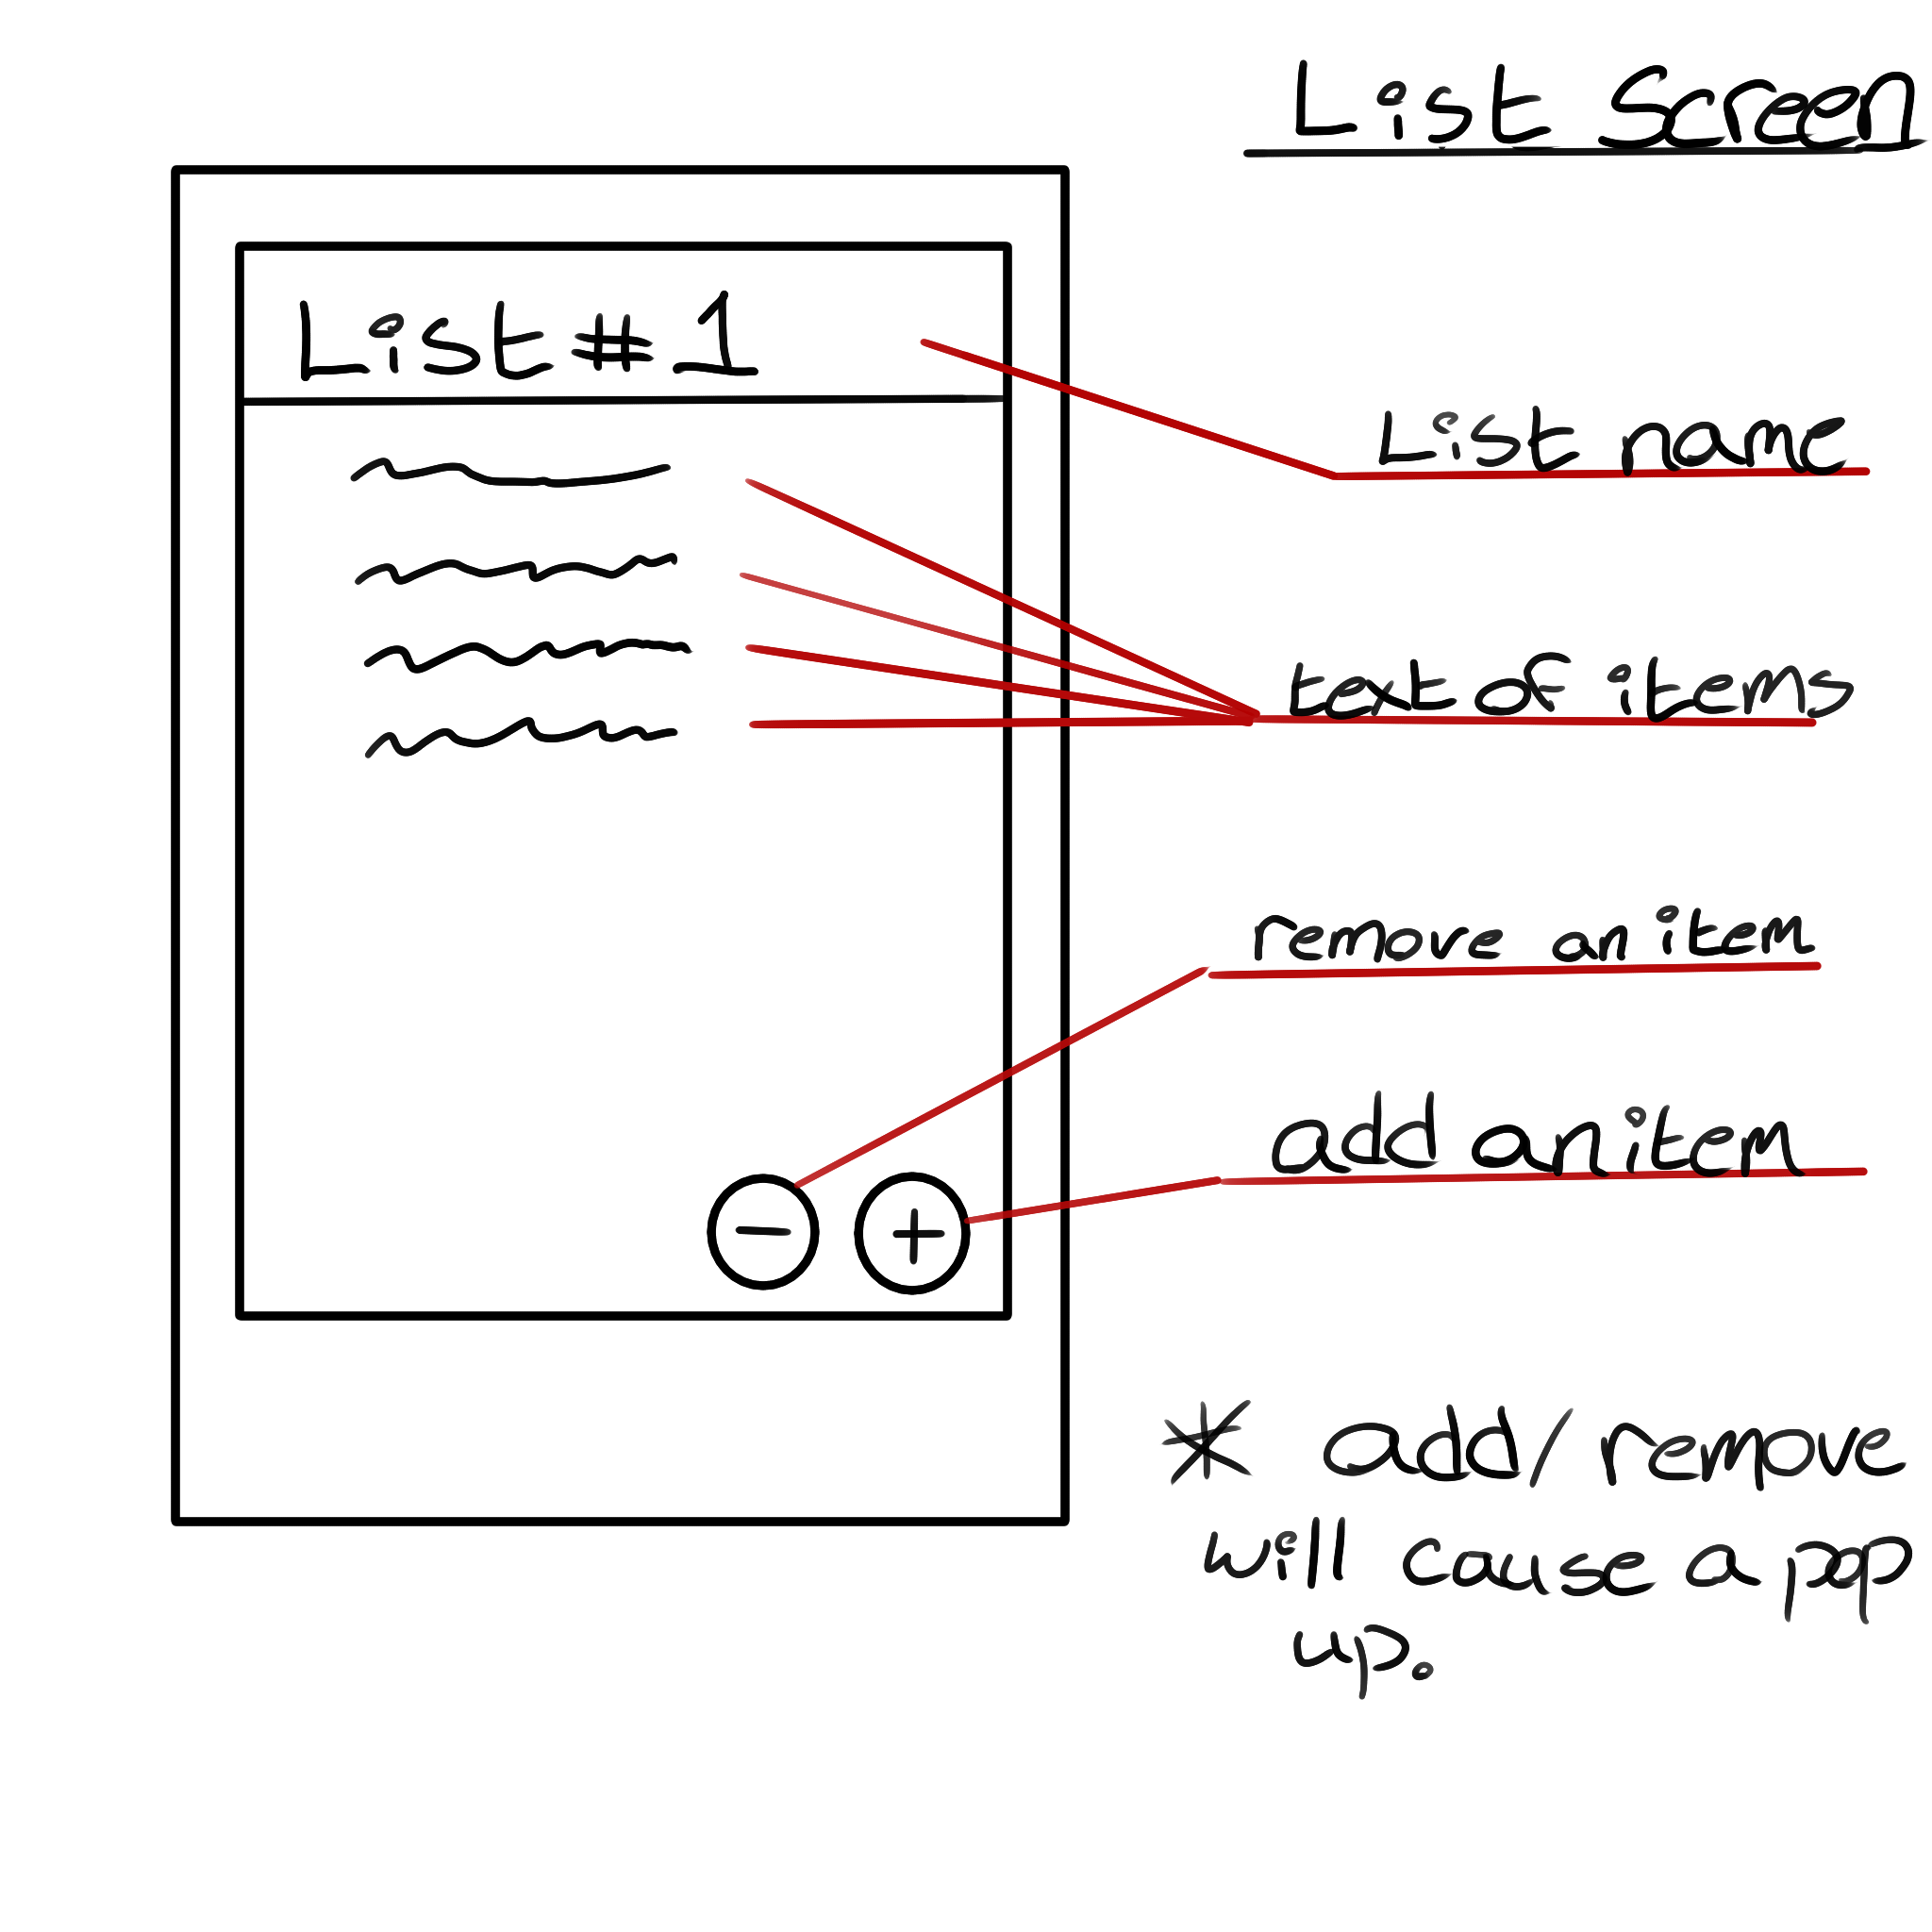 List Screen
List #1
List name
text of items
remove an item
add an item
* add/remove
will cause a pop
up.